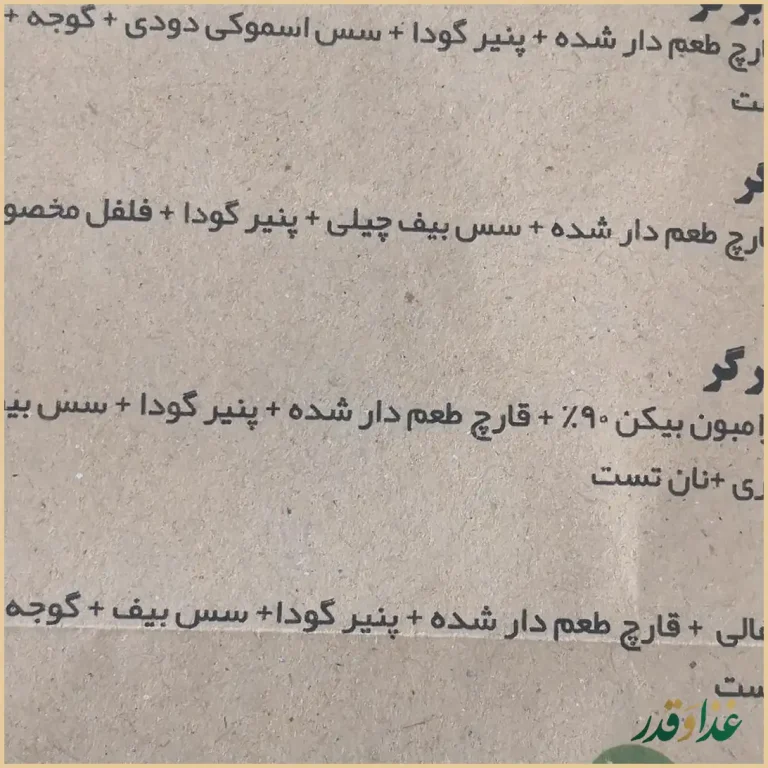 قارچ طعم دار شده + پنیر گودا + سس اسموکی دودی + گوجه +
قارچ طعم دار شده + سس بیف چیلی + پنیر گودا + فلفل
رگر
بیکن ۹۰٪ + قارچ طعم دار شده + پنیر گودا + سس
ری +نان تست
+ قارچ طعم دار شده + پنیر گودا+ سس بیف + گوجه
غذا و قدر